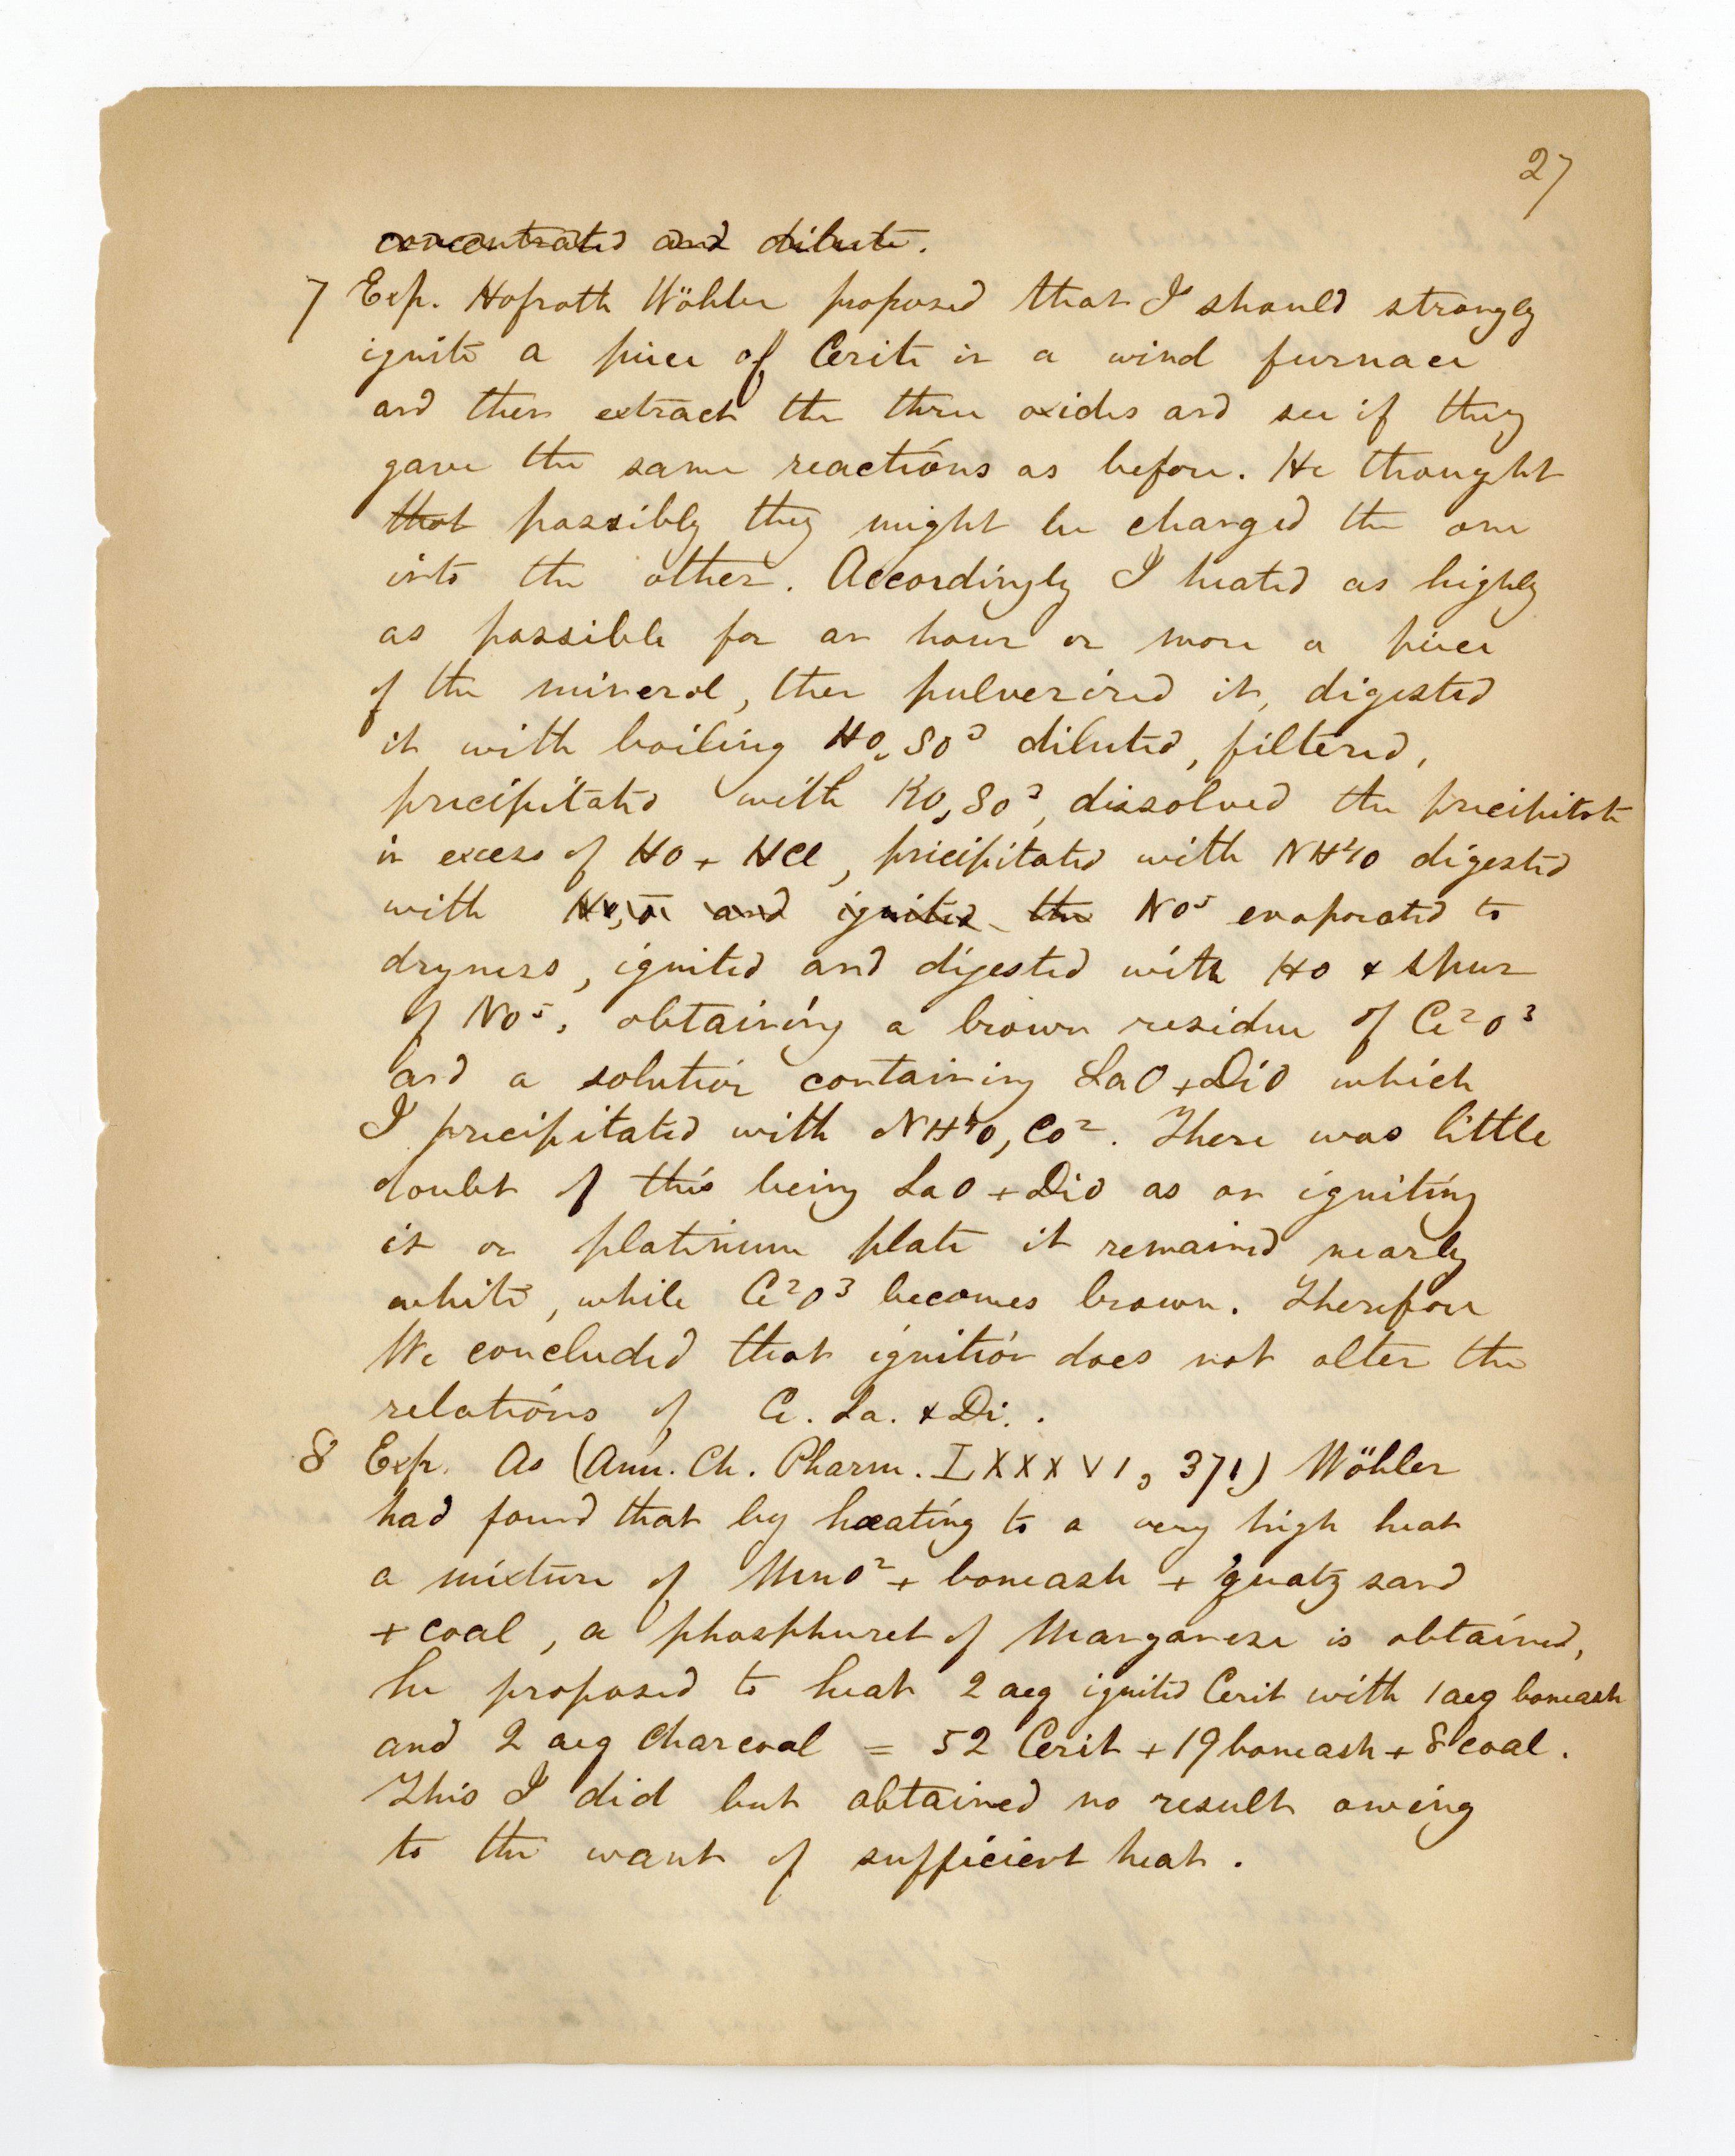 27
concentrated and dilute.
7 Exp. Hofrath Wöhler proposed that I should strongly
ignite a piece of Cerite in a wind furnace
and then extract the three oxides and see if they
gave the same reactions as before. He thought
that possibly they might be changed the one
into the other. Accordingly I heated as highly
as possible for an hour or more a piece
of the mineral, then pulverized it, digested
it with boiling HO, SO³ diluted, filtered,
precipitated with KO, SO³, dissolved the precipitate
in excess of HO + HCl, precipitated with NH⁴O digested
with and ignited the NO⁵ evaporated to
dryness, ignited and digested with HO & spur
of NO⁵, obtaining a brown residue of Ce²O³
and a solution containing LaO + DiO which
I precipitated with NH⁴O, CO². There was little
doubt of this being LaO + DiO as on igniting
it on platinum plate it remained nearly
white, while Ce²O³ becomes brown. Therefore
We concluded that ignition does not alter the
relations of Ce. La. & Di. .
8 Exp. As (Ann. Ch. Pharm. LXXXVI, 371) Wöhler
had found that by heating to a very high heat
a mixture of MnO² + boneash + quatz sand
+ coal, a phosphuret of Manganese is obtained,
he proposed to heat 2 aeq ignited Cerit with 1 aeq boneash
and 2 aeq Charcoal = 52 Cerit + 19 boneash + 8 coal.
This I did but obtained no result owing
to the want of sufficient heat.